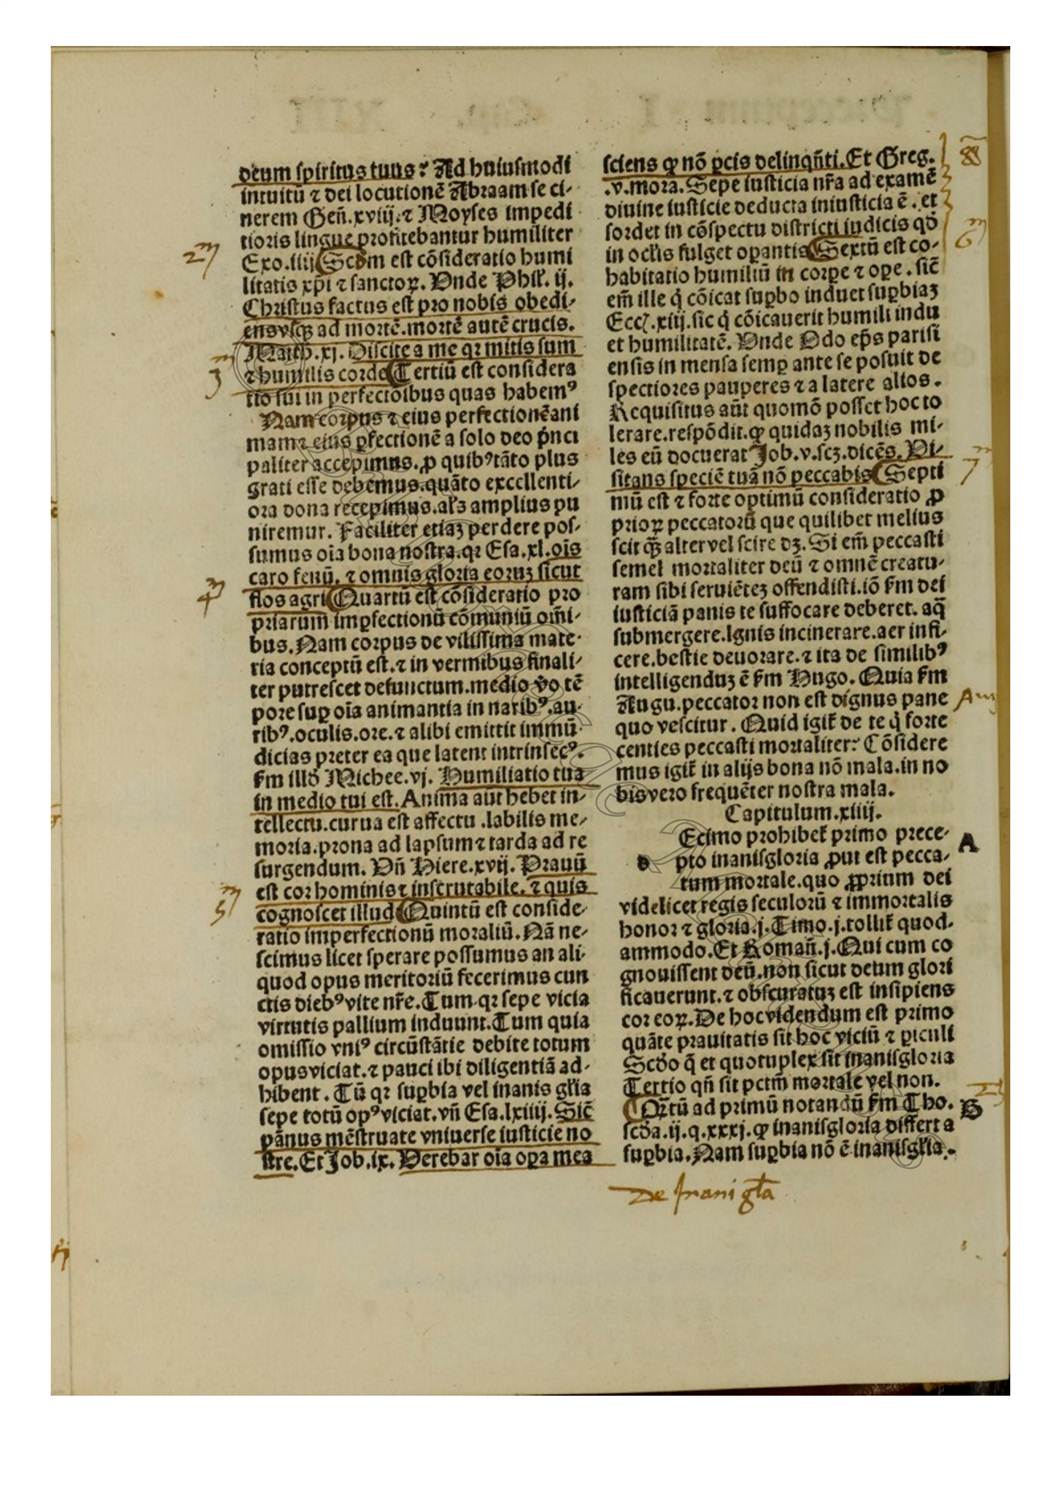 deum spiritus tuus? Ad huiusmodi
intuitū ⁊ dei locutionē Abraam se ci-
nerem Geñ.xviij.⁊ Moyses impedi
tioris lingue profitebantur humiliter
Exo.iiij Scḋm est cōsideratio humi
litatis xp̄i ⁊ sanctoꝝ. Vnde Phil̓. ij.
Christus factus est pro nobis obedi-
ens vsqꝫ ad mortē.mortē autē crucis.
Matth.xj. Discite a me qꝛ mitis sum
⁊ humilis corde Tertiū est considera
tio sui in perfectōibus quas habemꝰ
Nam corpus ⁊ eius perfectionē ani
mam ⁊ eius ꝑfectionē a solo deo p̄nci
paliter accepimus. ꝓ quibꝰ tāto plus
grati esse debemus.quāto excellenti-
ora dona recepimus.al̓s amplius pu
niremur. Faciliter etiaꝫ perdere pos-
sumus oīa bona nostra.qꝛ Esa.xl.oīs
caro fenū. ⁊ omnis gloria eoruꝫ sicut
flos agri Quartū est cōsideratio pro
priarum imꝑfectionū cōmuniū om̄i-
bus. Nam corpus de vilissima mate-
ria conceptū est.⁊ in vermibus finali-
ter putrescet defunctum.medio v̊o tē
pore suꝑ oīa animantia in naribꝰ.au-
ribꝰ.oculis.ore.⁊ alibi emittit immū-
dicias preter ea que latent intrinsecꝰ.
ẜm illḋ Michee.vj. Humiliatio tua
in medio tui est. Anima aūt hebet in-
tellectu.curua est affectu .labilis me-
moria.prona ad lapsum ⁊ tarda ad re
surgendum. Vñ Hiere.xvij. Prauū
est cor hominis ⁊ inscrutabile. ⁊ quis
cognoscet illud Quintū est conside-
ratio imperfectionū moraliū. Nā ne-
scimus licet sperare possumus an ali-
quod opus meritoriū fecerimus cun
ctis diebꝰ vite nr̄e. Tum qꝛ sepe vicia
virtutis pallium induunt. Tum quia
omissio vniꝰ circūstātie debite totum
opus viciat.⁊ pauci ibi diligentiā ad-
hibent . Tū qꝛ suꝑbia vel inanis gl̓ia
sepe totū opꝰ viciat.vñ Esa.lxiiij. Sic̄
pānus mēstruate vniuerse iusticie no
stre. Et Job.ix. Verebar oīa oꝑa mea
sciens ꝙ nō ꝑcis delinqñti. Et Greg.
.v.mora. Sepe iusticia nr̄a ad examē
diuine iusticie deducta iniusticia ē . et
sordet in cōspectu districti iudicis qḋ
in ocl̓is fulget oꝑantis Sextū est co-
habitatio humiliū in corꝑe ⁊ oꝑe . sic̄
em̄ ille q̇ cōicat suꝑbo induet suꝑbiaꝫ
Eccl̓.xiij.sic q̇ cōicauerit humili indu
et humilitatē. Vnde Odo ep̄s parisi
ensis in mensa semꝑ ante se posuit de
spectiores pauperes ⁊ a latere alios .
Requisitus aūt quomō posset hoc to
lerare.respōdit.ꝙ quidaꝫ nobilis mi-
les eū docuerat Job.v.scꝫ.dicēs. Vi-
sitans speciē tuā nō peccabis Septi
mū est ⁊ forte optimū consideratio ꝓ
prioꝝ peccatorū que quilibet melius
scit q̄ꝫ alter vel scire dꝫ. Si em̄ peccasti
semel mortaliter deū ⁊ omnē creatu-
ram sibi seruiēteꝫ offendisti.iō ẜm dei
iusticiā panis te suffocare deberet. aq̄
submergere.Ignis incinerare.aer infi-
cere.bestie deuorare.⁊ ita de similibꝰ
intelligenduꝫ ē ẜm Hugo. Quia ẜm
Augu.peccator non est dignus pane
quo vescitur . Quid igit̓ de te q̇ forte
centies peccasti mortaliter? Cōsidere
mus igit̓ in alijs bona nō mala.in no
bis vero frequēter nostra mala.
Capitulum.xiiij.
Ecimo prohibet̓ primo prece-
d pto inanisgloria ꝓut est pecca-
tum mortale.quo ꝓprium dei
videlicet regis seculorū ⁊ immortalis
honor ⁊ gloria.j.Timo.j.tollit̓ quod-
ammodo. Et Romañ.j. Qui cum co
gnouissent deū.non sicut deum glori
ficauerunt.⁊ obscuratuꝫ est insipiens
cor eoꝝ. De hoc videndum est primo
quāte prauitatis sit hoc viciū ⁊ ꝑiculi
Scḋo q̄ et quotuplex sit inanisgloria
Tertio qñ sit pctm̄ mortale vel non.
Q̄ꝛtū ad primū notandū ẜm Tho.
scḋa.ij.q.xxxj.ꝙ inanisgloria differt a
suꝑbia. Nam suꝑbia nō ē inanisgl̓ia.
A
B
88
2
3
4
5
6
7
De Inani gl̄a